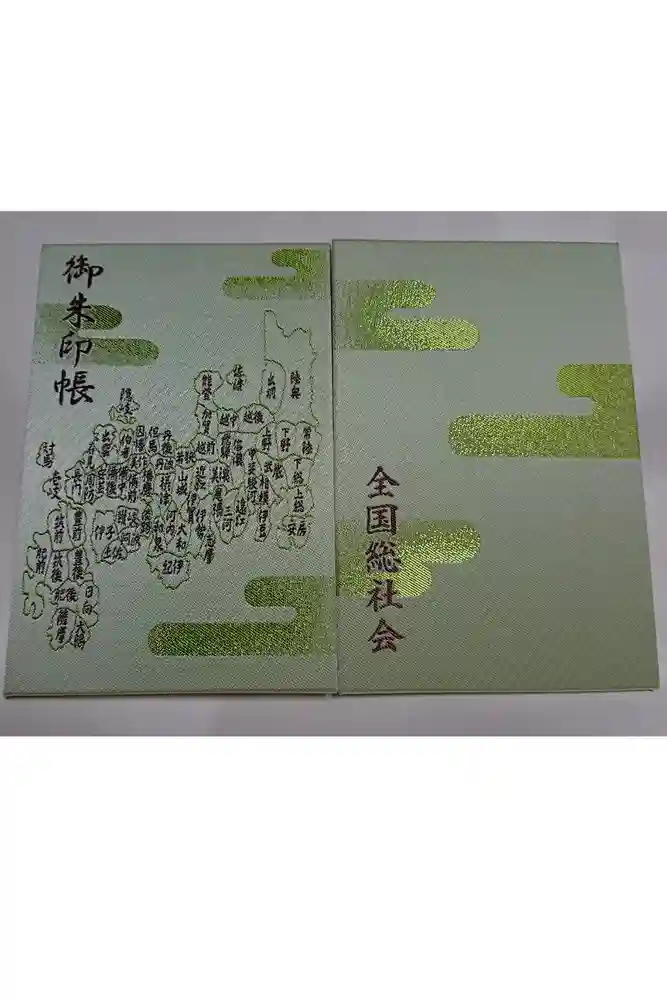 御朱印帳
佐渡
能登
出羽
陸奥
加賀
越中
越後
隠岐
越前
上野
下野
常陸
対馬
出雲
伯耆
但馬
丹後
若狭
近江
美濃
信濃
甲斐
武蔵
下総
上総
安房
長門
周防
備中
備前
山城
伊賀
三河
遠江
駿河
相模
伊豆
筑前
豊前
河内
大和
伊勢
志摩
和泉
肥前
筑後
豊後
伊予
土佐
紀伊
肥後
日向
薩摩
大隅
全国総社会